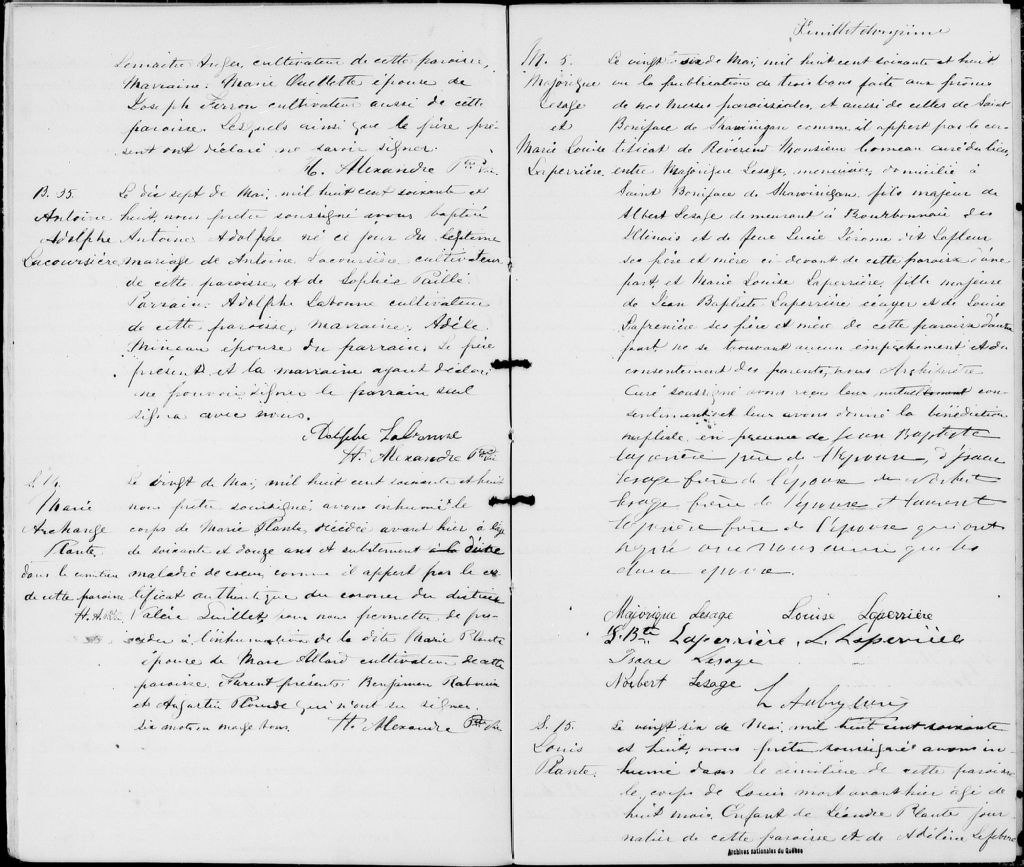 Lemaitre Auger, cultivateur de cette paroisse,
Marraine: Marie Ouellette épouse de
Joseph Ferron cultivateur aussi de cette
paroisse. Lesquels ainsi que le père pré-
sent ont déclaré ne savoir signer.
H. Alexandre Ptre
B. 35.
Antoine
Adolphe
Lacoursière
Le dix sept de Mai, mil huit cent soixante et
huit, nous prêtre soussigné avons baptisé
Antoine Adolphe né ce jour du
mariage de Antoine Lacoursière, cultivateur
de cette paroisse et de Sophie
Parrain: Adolphe cultivateur
de cette paroisse, marraine: Adèle
Mineau épouse du parrain. Le père
présent et la marraine ayant déclaré
ne pouvoir signer le parrain seul
signa avec nous.
Adolphe
H. Alexandre Ptre
S. 14.
Marie
Archange
Plante
dans le cimetière
de cette paroisse
H. A. Ptre
Le vingt de Mai, mil huit cent soixante et huit
nous prêtre soussigné, avons inhumé le
corps de Marie Plante, décédée avant hier à l'âge
de soixante et douze ans et subitement
maladie de coeur, comme il appert par le cer
tificat authentique du coroner du district
Valère Guillet, pour nous permettre de pro-
céder à l'inhumation de la dite Marie Plante
épouse de Marc Allard cultivateur de cette
paroisse. Furent présents: Benjamin
et Augustin Plourde qui n'ont su signer.
six mots en marge bons. H. Alexandre Ptre
Feuillet onzième
M. 5.
Majorique
Lesage
et
Marie Louise
Laperrière
Le vingt six de Mai, mil huit cent soixante et huit
vu la publication de trois bans faite aux prônes
de nos Messes paroissiales, et aussi de celles de Saint
Boniface de Shawinigan comme il appert par le cer
tificat de Révérend Monsieur Comeau curé du lieu,
entre Majorique Lesage, menuisier, domicilié à
Saint Boniface de Shawinigan, fils majeur de
Albert Lesage demeurant à Bourbonnais des
Illinois et de feue Lucie Jérome dit Lafleur
ses père et mère ci-devant de cette paroisse d'une
part, et Marie Louise Laperrière, fille majeure
de Jean Baptiste Laperrière écuyer et de Louise
Lafrenière ses père et mère de cette paroisse d'autre
part, ne se trouvant aucun empêchement et du
consentement des parents, nous Archiprêtre
Curé soussigné avons reçu leur mutuel con
sentement et leur avons donné la bénédiction
nuptiale, en présence de Jean Baptiste
Laperrière père de l'épouse, d'Isaac
Lesage frère de l'époux de Norbert
Lesage frère de l'époux et Laurent
Laperrière frère de l'épouse qui ont
signé avec nous ainsi que les
deux époux.
Majorique Lesage Louise Laperrière
J. Bte Laperrière, L. Laperrière
Isaac Lesage
Norbert Lesage
S. 15.
Louis
Plante.
Le vingt six de Mai, mil huit cent soixante
et huit, nous prêtre soussigné avons in-
humé dans le cimetière de cette paroisse
le corps de Louis mort avant hier agé de
huit mois. Enfant de Léandre Plante jour
nalier de cette paroisse et de Adéline Lefebvre
Archives nationales du Québec